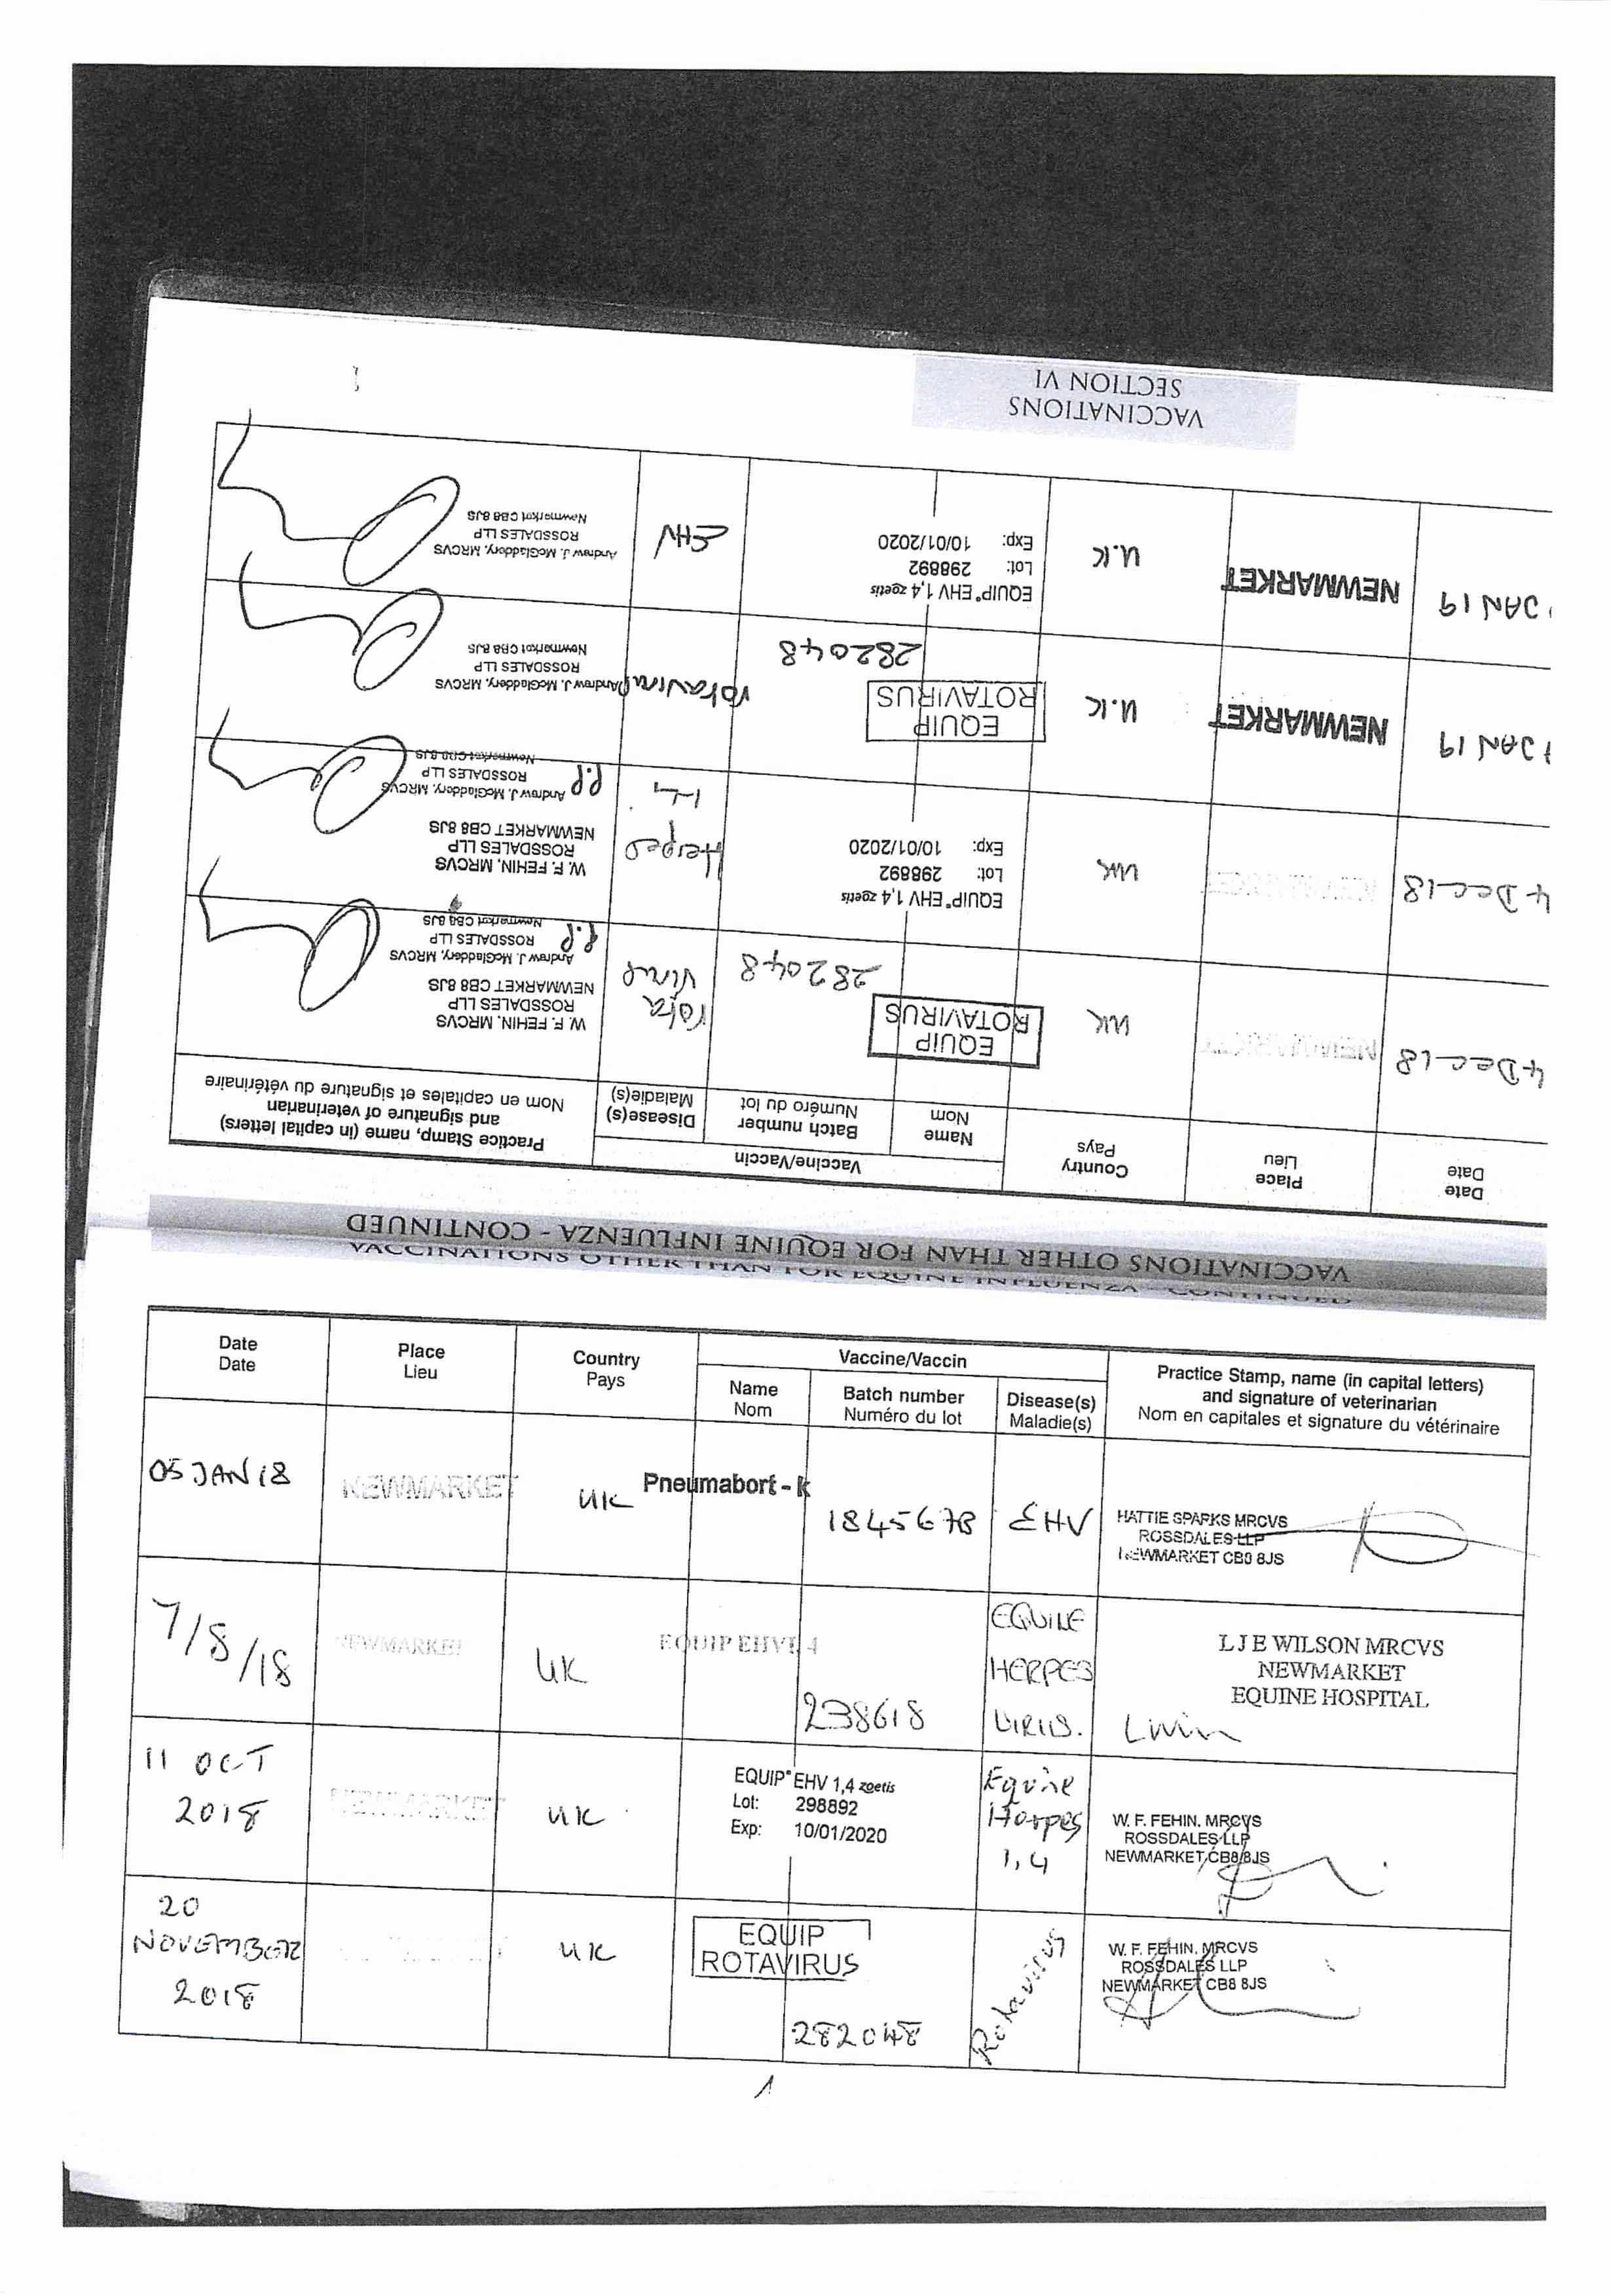 VACCINATIONS
SECTION VI
VACCINATIONS OTHER THAN FOR EQUINE INFLUENZA - CONTINUED
Date
Date
Place
Lieu
Country
Pays
Vaccine/Vaccin
Name
Nom
Batch number
Numéro du lot
Disease(s)
Maladie(s)
Practice Stamp, name (in capital letters)
and signature of veterinarian
Nom en capitales et signature du vétérinaire
4 Dec 18
NEWMARKET
UK
EQUIP
ROTAVIRUS
282048
Rota
Virus
W. F. FEHIN, MRCVS
ROSSDALES LLP
NEWMARKET CB8 8JS
P.P
Andrew J. McGladdery, MRCVS
ROSSDALES LLP
Newmarket CB8 8JS
4 Dec 18
NEWMARKET
UK
EQUIP® EHV 1,4 zoetis
Lot: 298892
Exp: 10/01/2020
Herpes
1,4
W. F. FEHIN, MRCVS
ROSSDALES LLP
NEWMARKET CB8 8JS
P.P
Andrew J. McGladdery, MRCVS
ROSSDALES LLP
Newmarket CB8 8JS
JAN 19
NEWMARKET
U.K
EQUIP
ROTAVIRUS
282048
rotavirus
Andrew J. McGladdery, MRCVS
ROSSDALES LLP
Newmarket CB8 8JS
JAN 19
NEWMARKET
U.K
EQUIP® EHV 1,4 zoetis
Lot: 298892
Exp: 10/01/2020
EHV
Andrew J. McGladdery, MRCVS
ROSSDALES LLP
Newmarket CB8 8JS
VACCINATIONS OTHER THAN FOR EQUINE INFLUENZA - CONTINUED
Date
Date
Place
Lieu
Country
Pays
Vaccine/Vaccin
Name
Nom
Batch number
Numéro du lot
Disease(s)
Maladie(s)
Practice Stamp, name (in capital letters)
and signature of veterinarian
Nom en capitales et signature du vétérinaire
05 JAN 18
NEWMARKET
UK
Pneumabort - k
184567B
EHV
HATTIE SPARKS MRCVS
ROSSDALES LLP
NEWMARKET CB8 8JS
7/8/18
NEWMARKET
UK
EQUIP EHV1,4
238618
EQUINE
HERPES
VIRUS.
L J E WILSON MRCVS
NEWMARKET
EQUINE HOSPITAL
11 OCT
2018
NEWMARKET
UK
EQUIP® EHV 1,4 zoetis
Lot: 298892
Exp: 10/01/2020
Equine
Herpes
1, 4
W. F. FEHIN, MRCVS
ROSSDALES LLP
NEWMARKET CB8 8JS
20
NOVEMBER
2018
UK
EQUIP
ROTAVIRUS
282048
Rotavirus
W. F. FEHIN, MRCVS
ROSSDALES LLP
NEWMARKET CB8 8JS